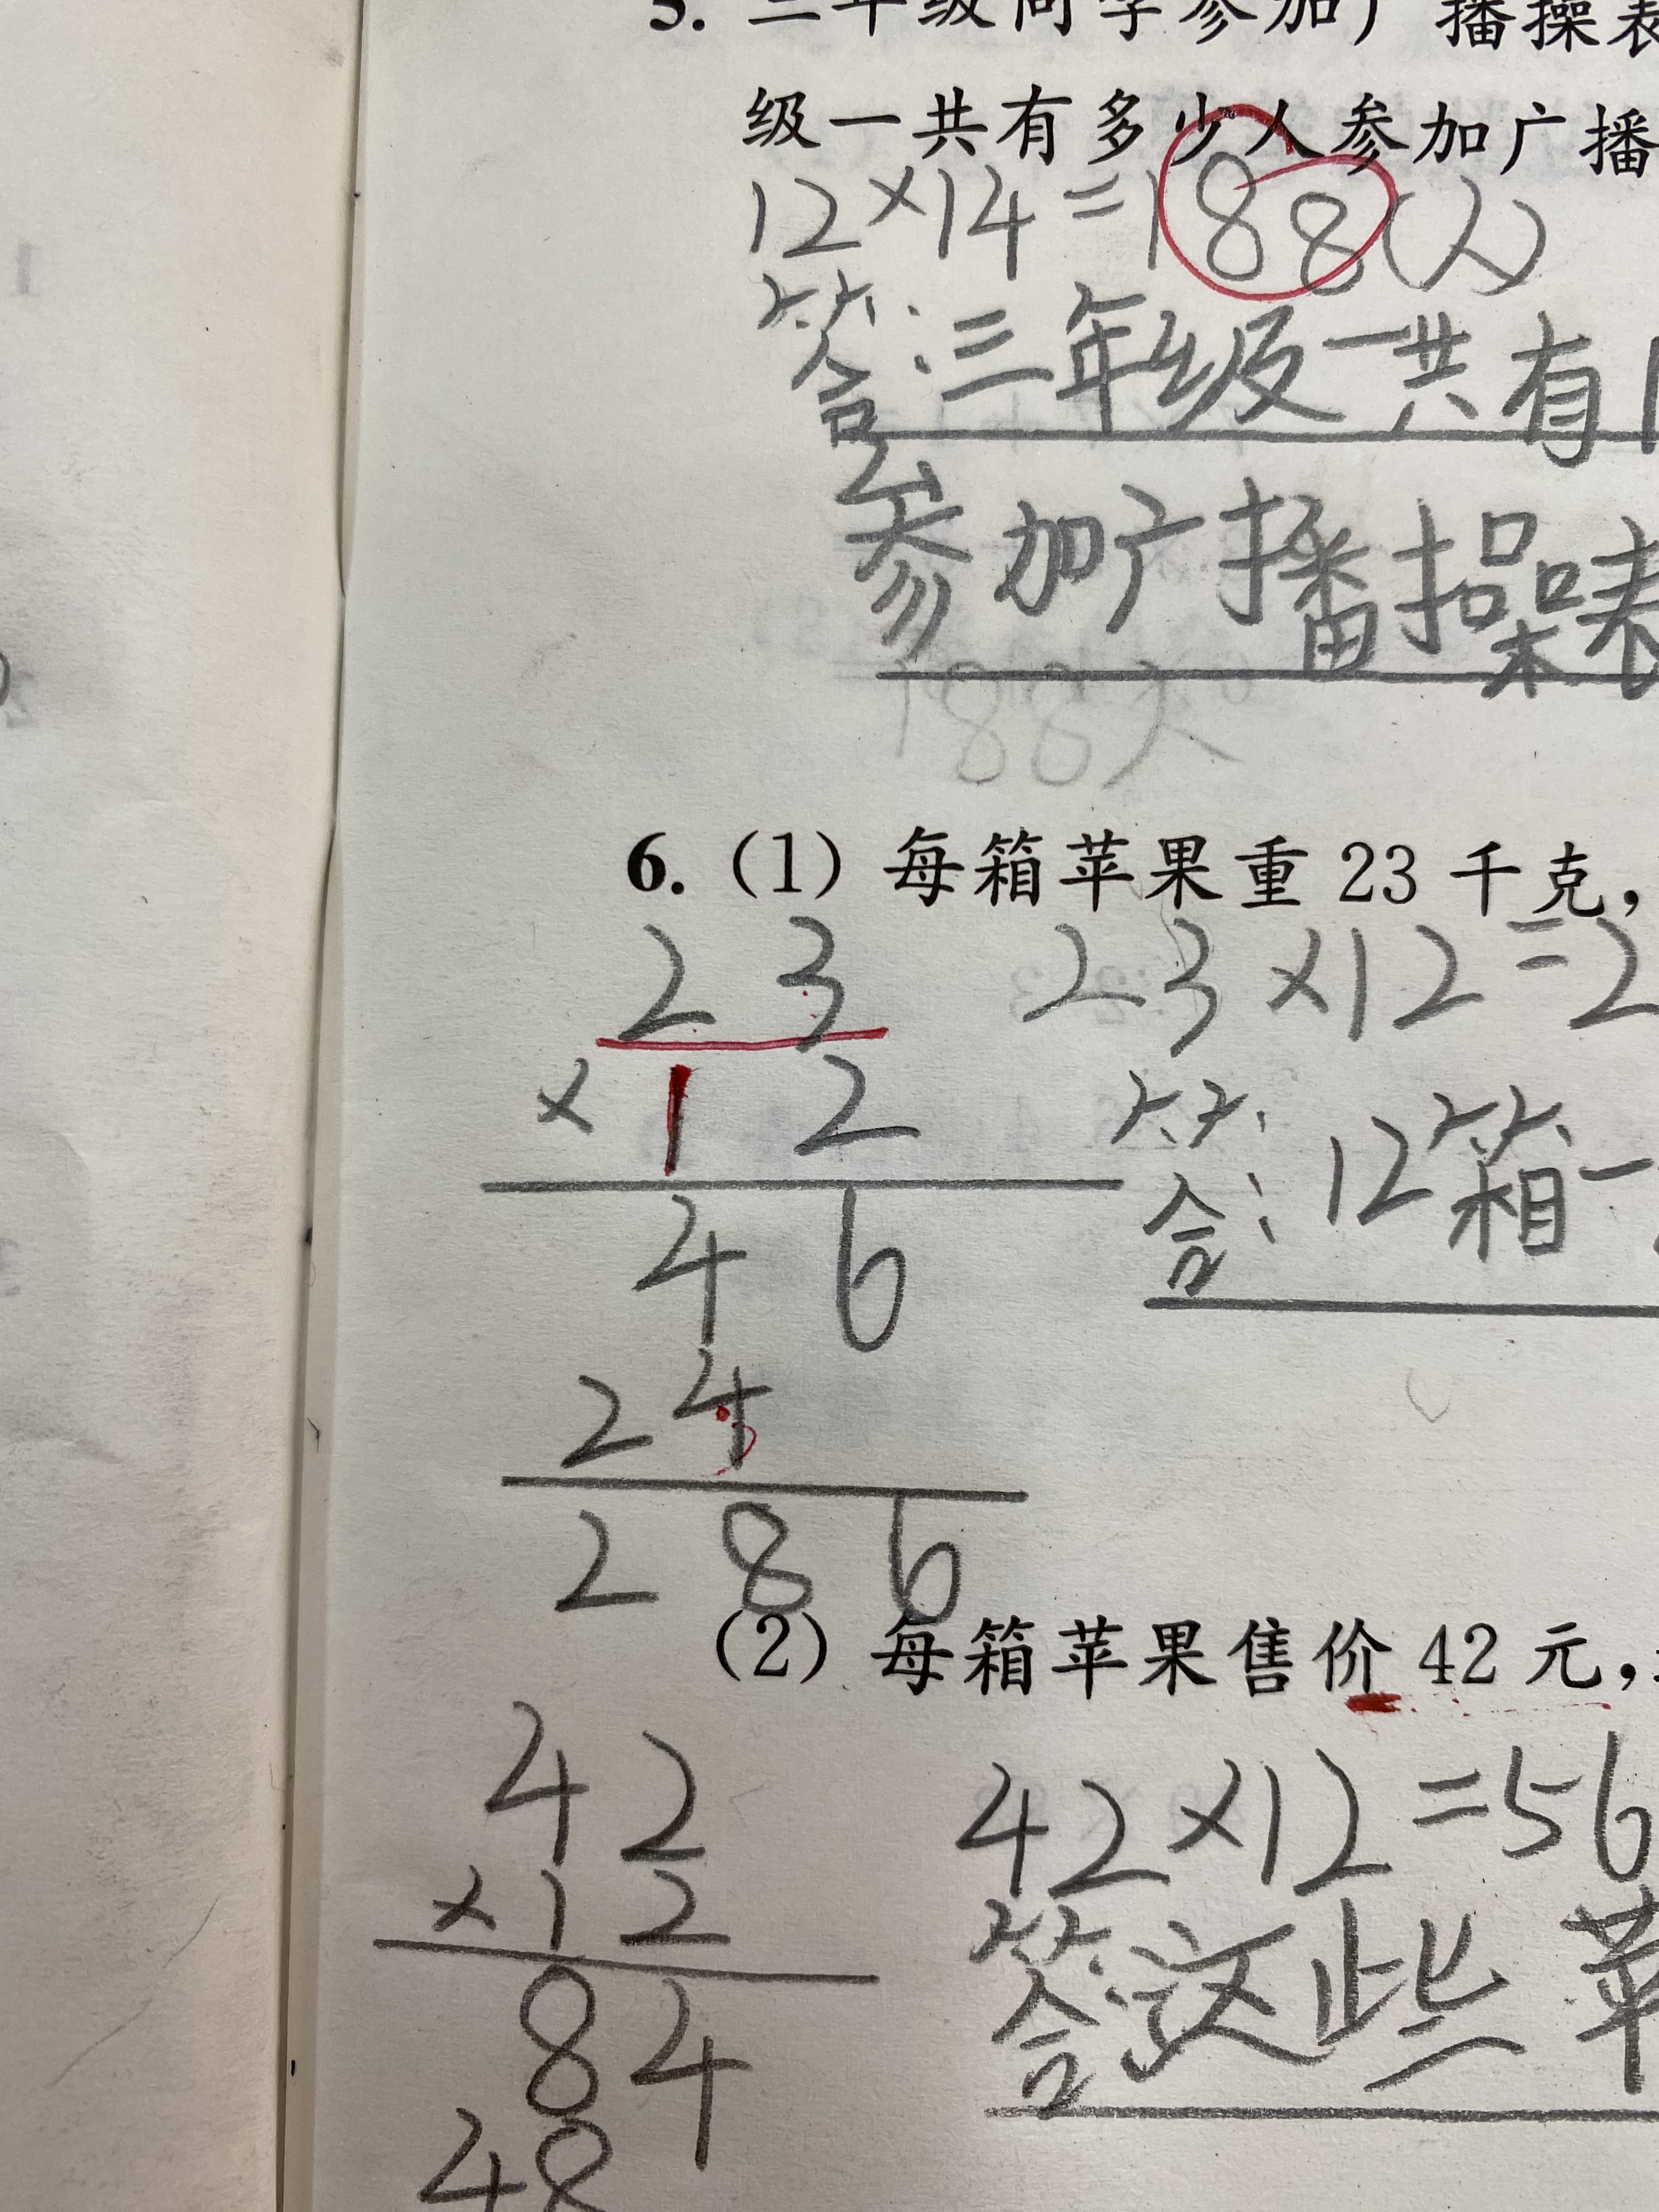 5. 三年级同学参加广播操表
级一共有多少人参加广播
12×14=188(人)
答:三年级一共有1
参加广播操表
188人
6. (1) 每箱苹果重 23 千克,
23 23×12=2
×12
答:12箱一
46
24
286
(2) 每箱苹果售价 42 元,
42 42×12=56
×12
答:这些苹
84
48